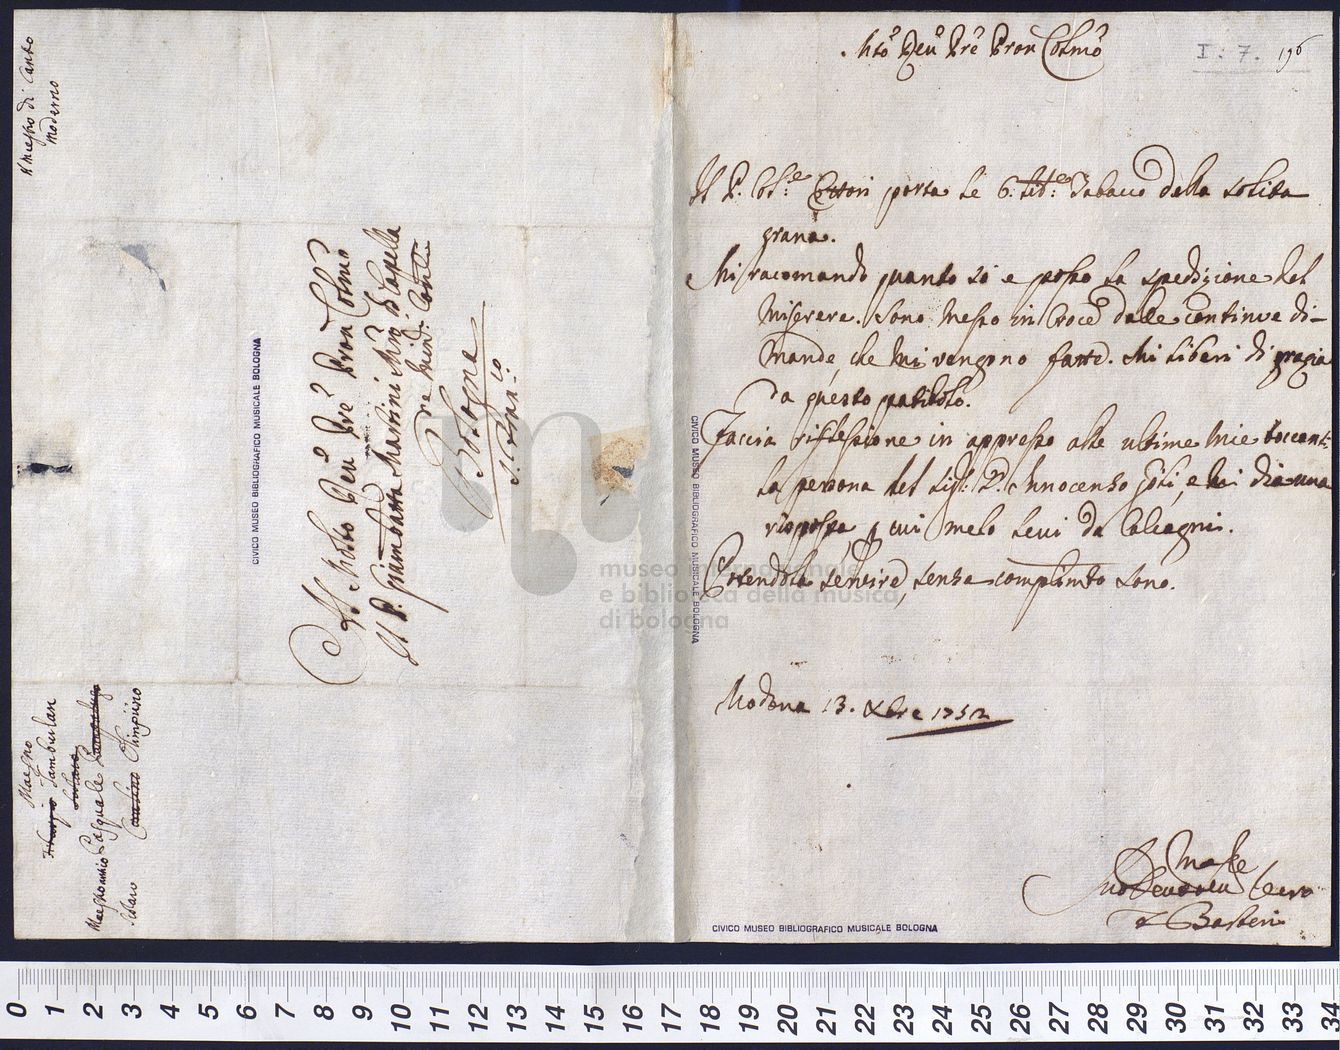 I: 7. 196
Mto Reu Pre Pron Colmo
Il P. porta le 6. Tabacco della solita
grana.
Mi racomando quanto sò e posso la spedizione del
Miserere. Sono messo in Croce dalle continue di-
mande, che mi vengono fatte. Mi liberi di grazia
da questo patibolo.
Faccia riflessione in appresso alle ultime mie toccanti
la persona del Sigr. D. Innocenzo Gigli, e mi dia una
risposta, cui me lo levi da Calcagni.
sentire, senza complimto sono.
Modona 13. Xbre 1752
Basteri
Al Molto Reu Pre Pron Colmo
Il P. Giambatta Martini Mro di Capella
Bologna
S. Franco
Maestro di Canto
Moderno
Maestro
Tamburlan
Pasquale
Olimpino
CIVICO MUSEO BIBLIOGRAFICO MUSICALE BOLOGNA
CIVICO MUSEO BIBLIOGRAFICO MUSICALE BOLOGNA
CIVICO MUSEO BIBLIOGRAFICO MUSICALE BOLOGNA
museo internazionale
e biblioteca della musica
di bologna
0 1 2 3 4 5 6 7 8 9 10 11 12 13 14 15 16 17 18 19 20 21 22 23 24 25 26 27 28 29 30 31 32 33 34